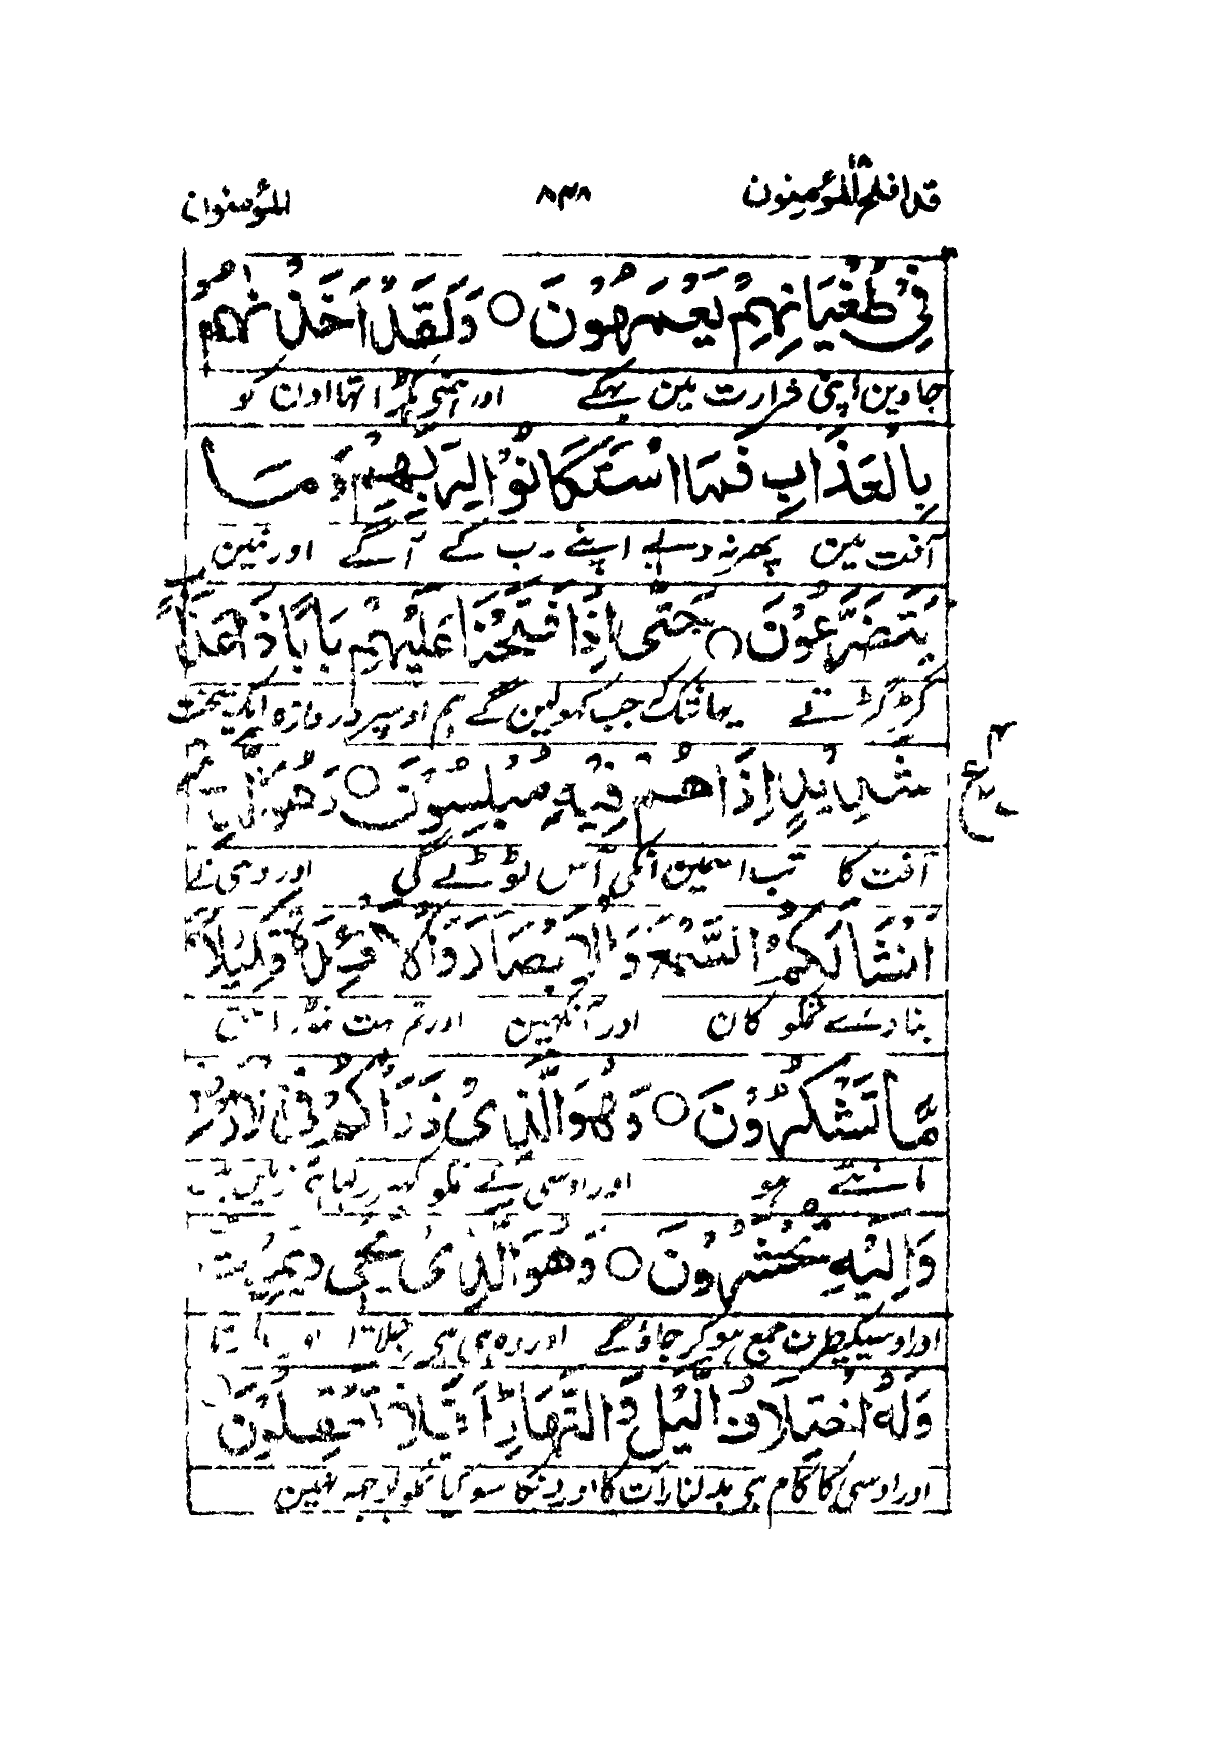 قد افلح ۱۸ المؤمنون
۸۳۸
المؤمنون
فِيْ طُغْيَانِهِمْ يَعْمَهُوْنَ ○ وَلَقَدْ اَخَذْنٰهُمْ
جاوین اپنی شرارت مین بہکے اور ہمنے پکڑا تہا اون کو
بِالْعَذَابِ فَمَا اسْتَكَانُوْا لِرَبِّهِمْ وَمَا
آفت مین پھر نہ دبے اپنے رب کے آگے اور نہین
يَتَضَرَّعُوْنَ ○ حَتّٰى اِذَا فَتَحْنَا عَلَيْهِمْ بَابًا ذَا عَذَابٍ
گڑگڑاتے یہانتک جب کہولین گے ہم اوسپر دروازہ ایک سخت
شَدِيْدٍ اِذَا هُمْ فِيْهِ مُبْلِسُوْنَ ○ وَهُوَ الَّذِيْ
ع
آفت کا تب اسمین انکی آس ٹوٹے گی اور وہی نے
اَنْشَاَ لَكُمُ السَّمْعَ وَالْاَبْصَارَ وَالْاَفْئِدَةَ قَلِيْلًا
بنا دئے تمکو کان اور آنکہین اور تم بہت
مَّا تَشْكُرُوْنَ ○ وَهُوَ الَّذِيْ ذَرَاَكُمْ فِى الْاَرْضِ
مانتے ہو اور اوسی نے تمکو زمین
وَاِلَيْهِ تُحْشَرُوْنَ ○ وَهُوَ الَّذِيْ يُحْيٖ وَيُمِيْتُ
اور اوسیکیطرن جمع ہوکر جاؤگے اور وہ ہی ہے جلاتا اور
وَلَهُ اخْتِلَافُ الَّيْلِ وَالنَّهَارِ اَفَلَا تَعْقِلُوْنَ
اور اوسی کا کام ہی بدلنا رات کا اور دنکا سو کیا تمکو بوجہ نہین